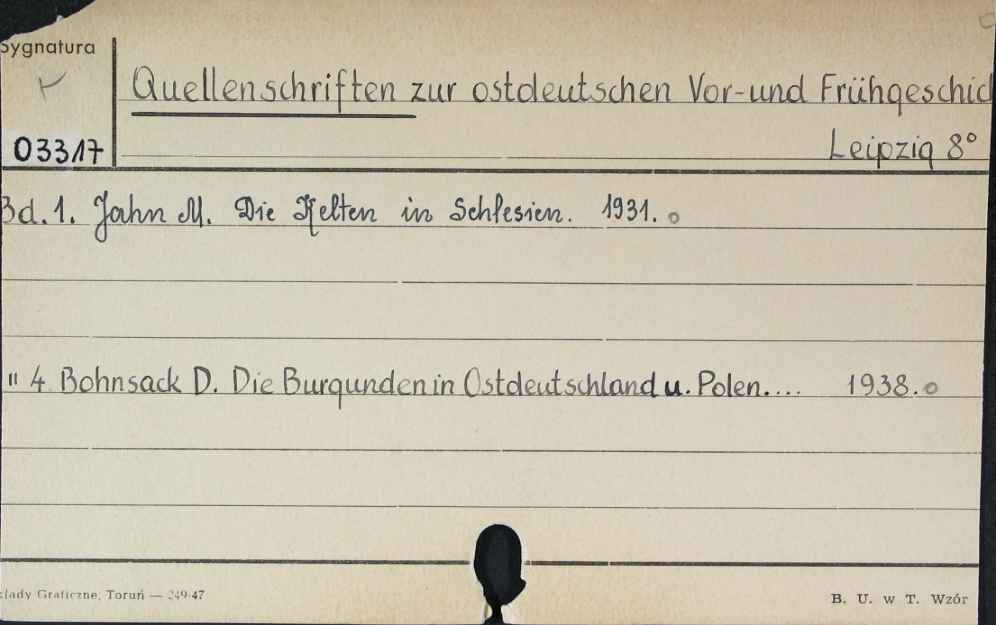 Sygnatura
Quellenschriften zur ostdeutschen Vor-und Frühgeschic
03317
Leipzig 8°
Bd. 1. Jahn M. Die Kelten in Schlesien. 1931. o
" 4 Bohnsack D. Die Burgunden in Ostdeutschland u. Polen.... 1938. o
kłady Graficzne, Toruń — 249-47
B. U. w T. Wzór